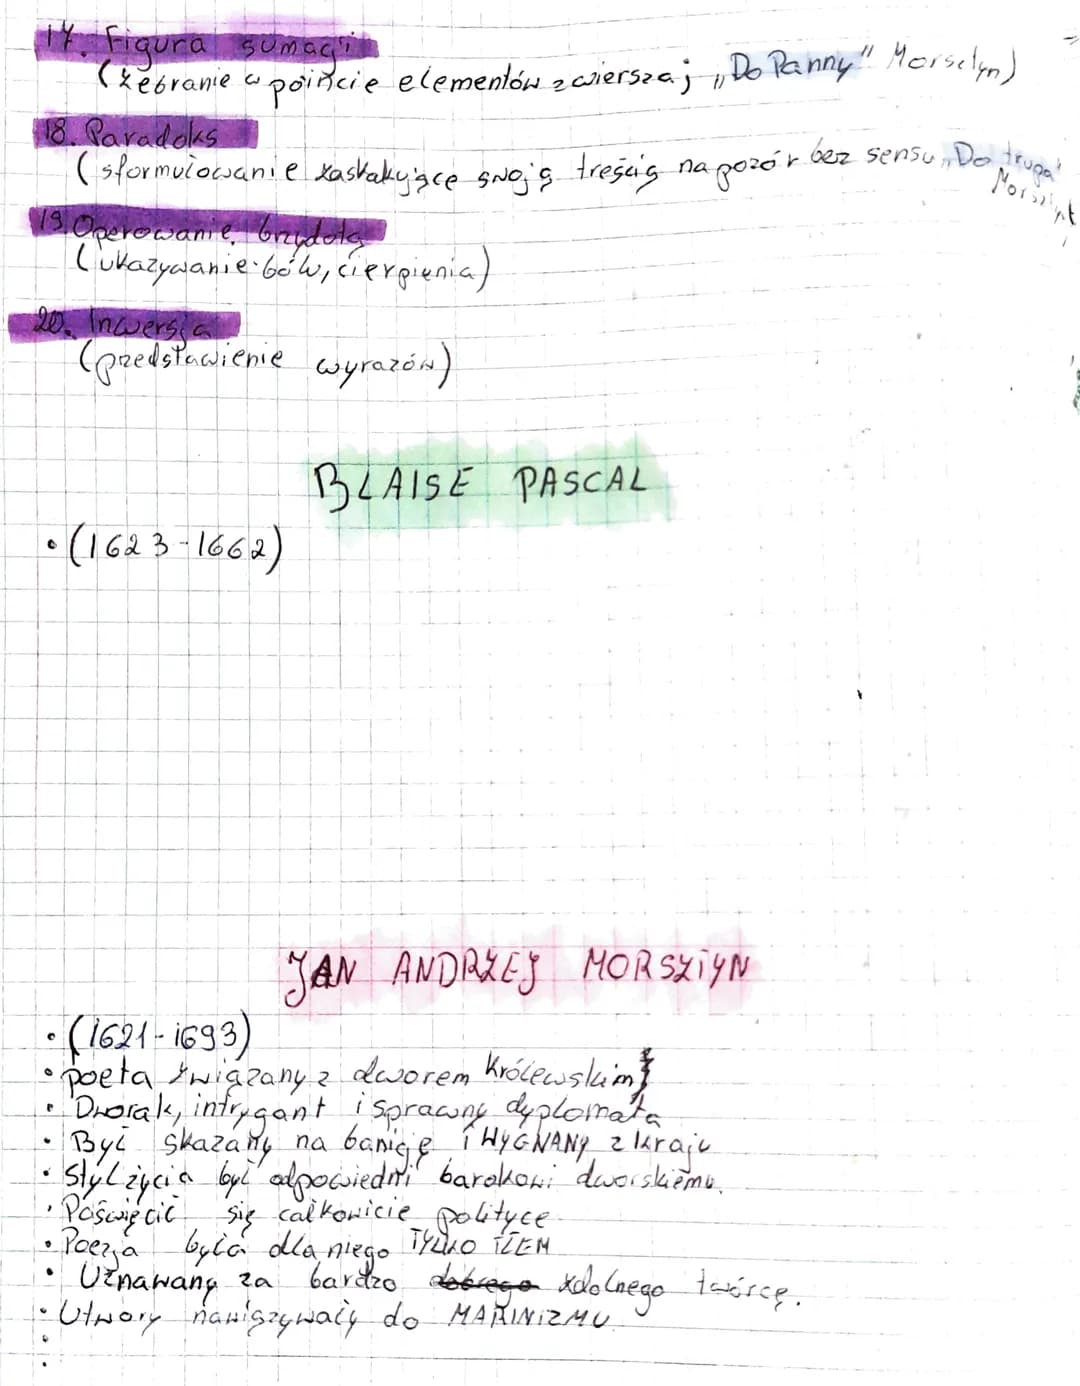 17. Figura sumacji
(zebranie w poincie elementów z wiersza; „Do Panny" Morsztyn)
18. Paradoks
(sformułowanie zaskakujące swoją treścią na pozór bez sensu „Do trupa"
Morsztyn
19. Operowanie brzydotą
(ukazywanie bólu, cierpienia)
20. Inwersja
(przedstawienie wyrazów)
BLAISE PASCAL
• (1623-1662)
JAN ANDRZEJ MORSZTYN
• (1621-1693)
• poeta związany z dworem królewskim
• Dworak, intrygant i sprawny dyplomata
• Był skazany na banicję i WYGNANY z kraju
• Styl życia był odpowiedni barokowi dworskiemu.
• Poświęcił się całkowicie polityce
• Poezja była dla niego TYLKO TŁEM
• Uznawany za bardzo dobrego zdolnego twórcę.
• Utwory nawiązywały do MARINIZMU